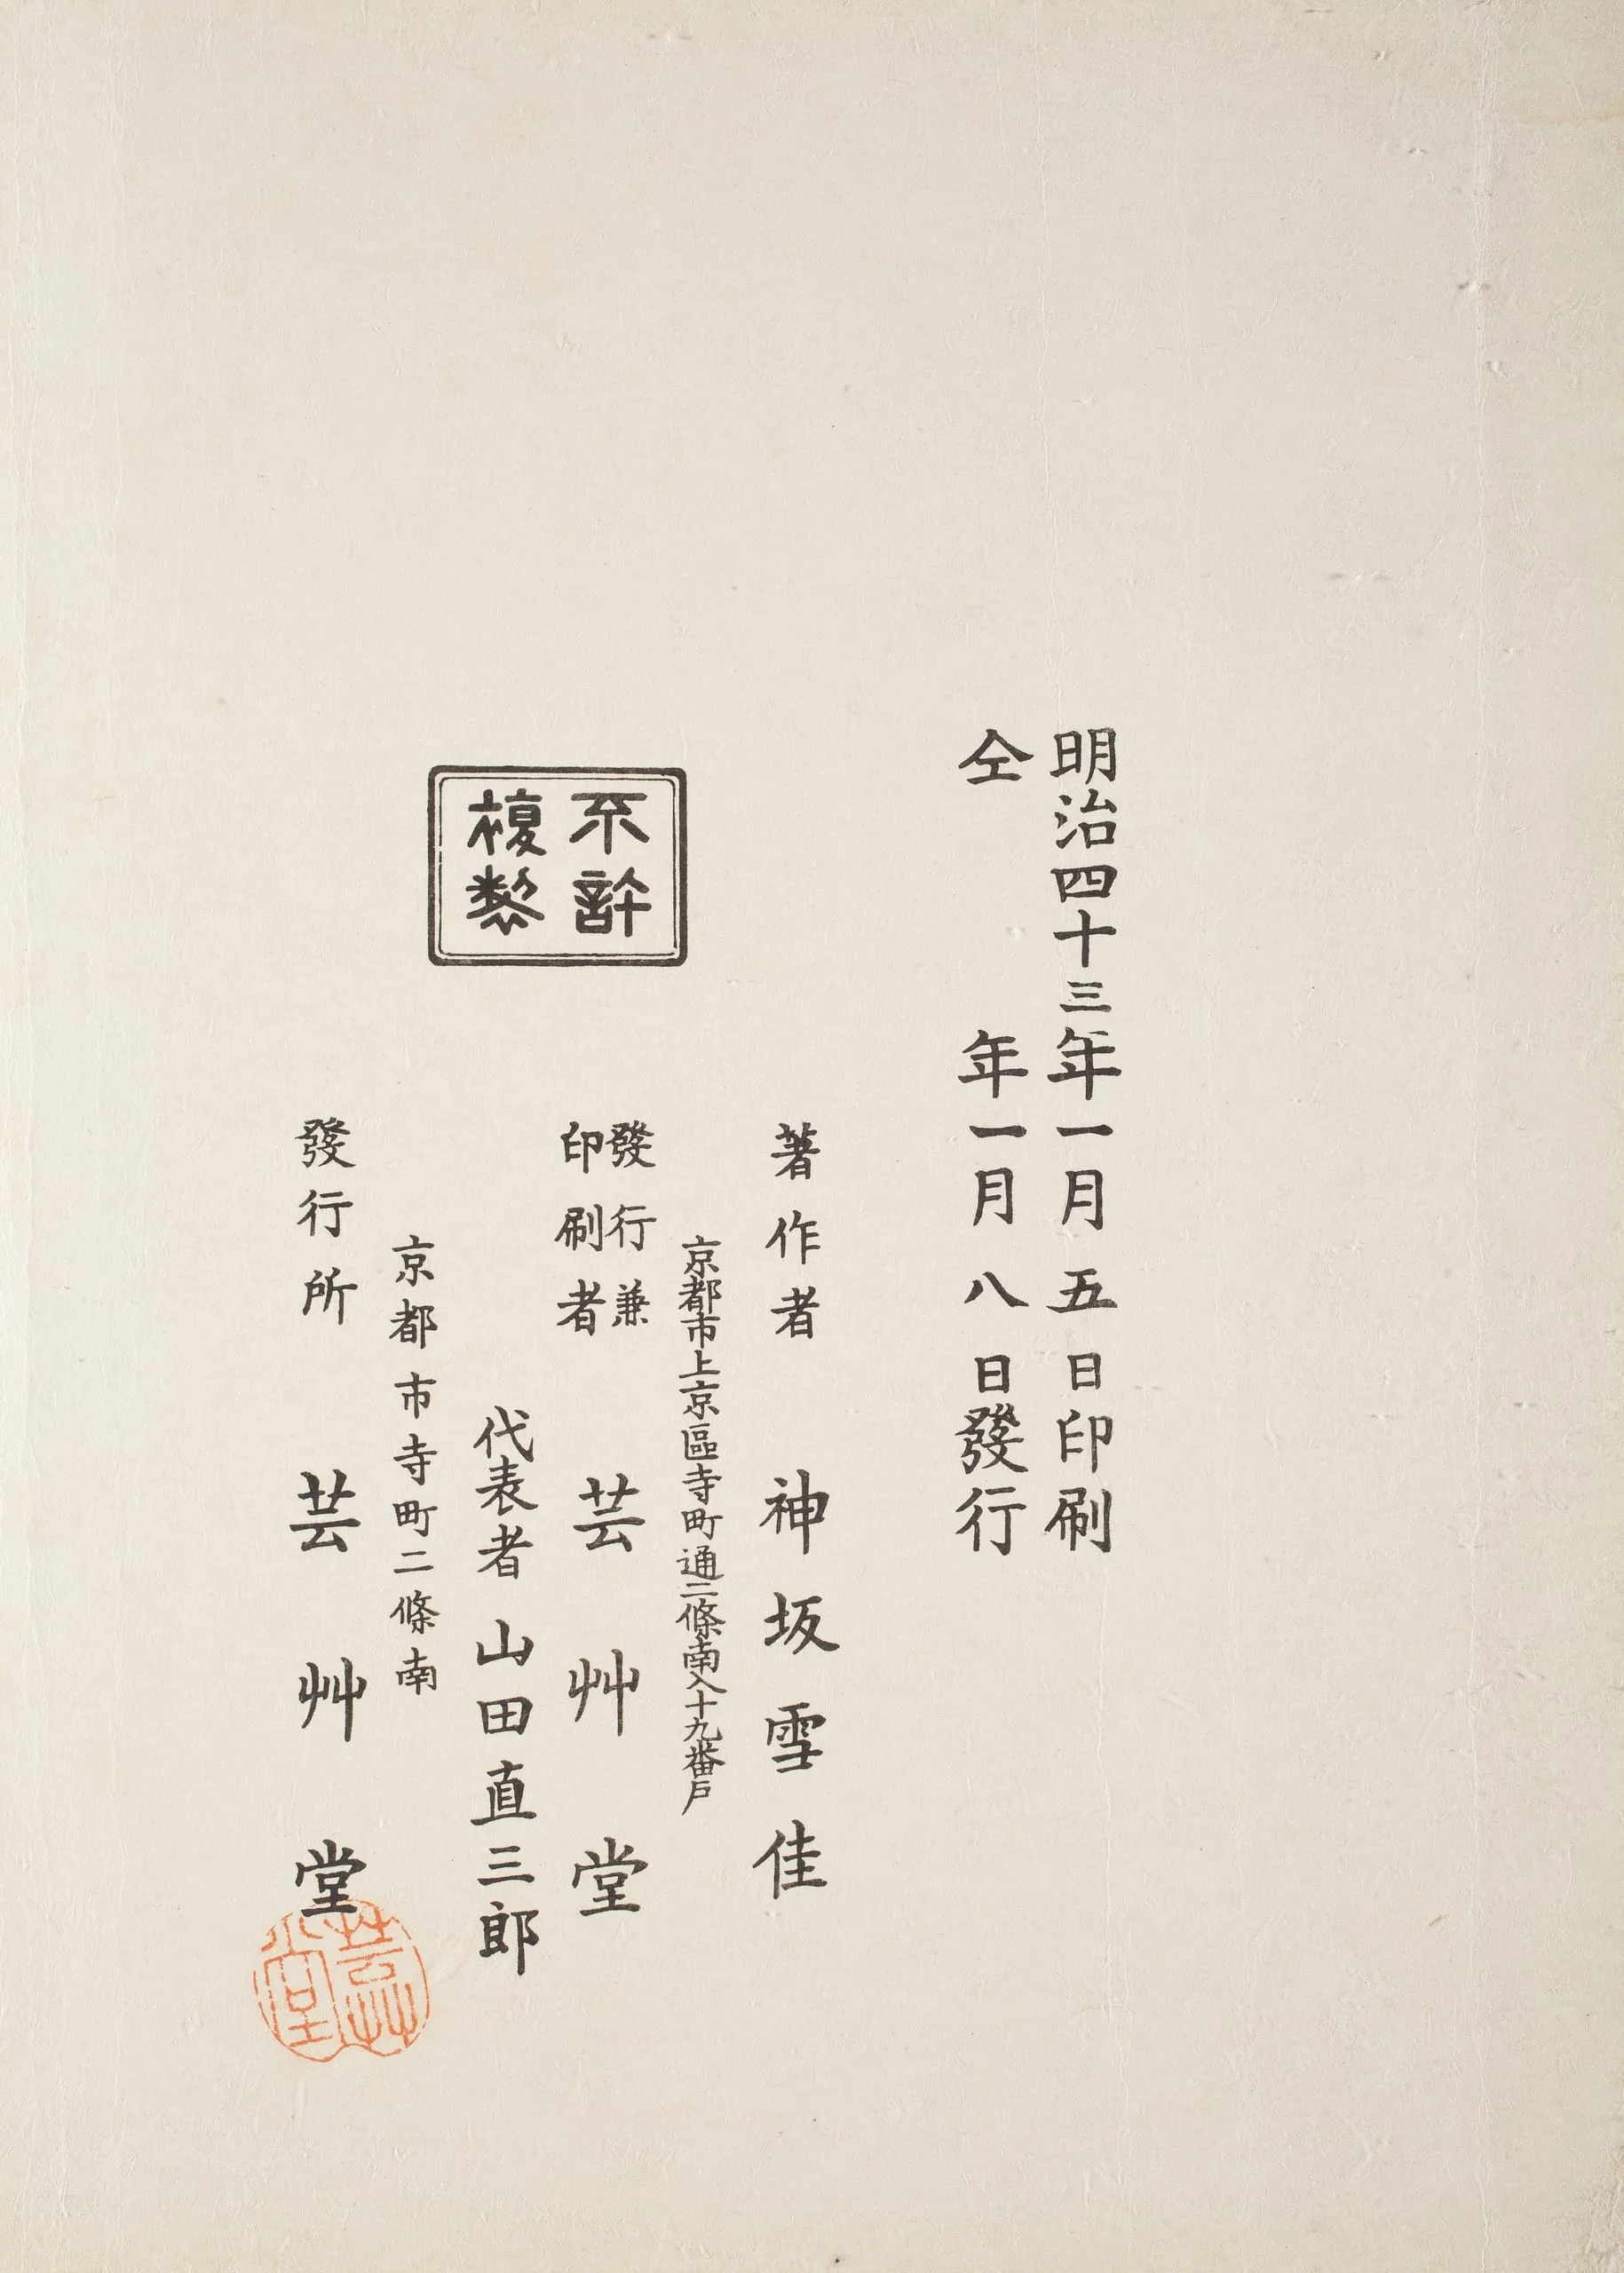 明治四十三年一月五日印刷
仝年一月八日發行
不許
複製
著作者 神坂雪佳
京都市上京區寺町通二條南入十九番戸
發行兼
印刷者 芸艸堂
代表者 山田直三郎
京都市寺町二條南
發行所 芸艸堂
芸艸
堂